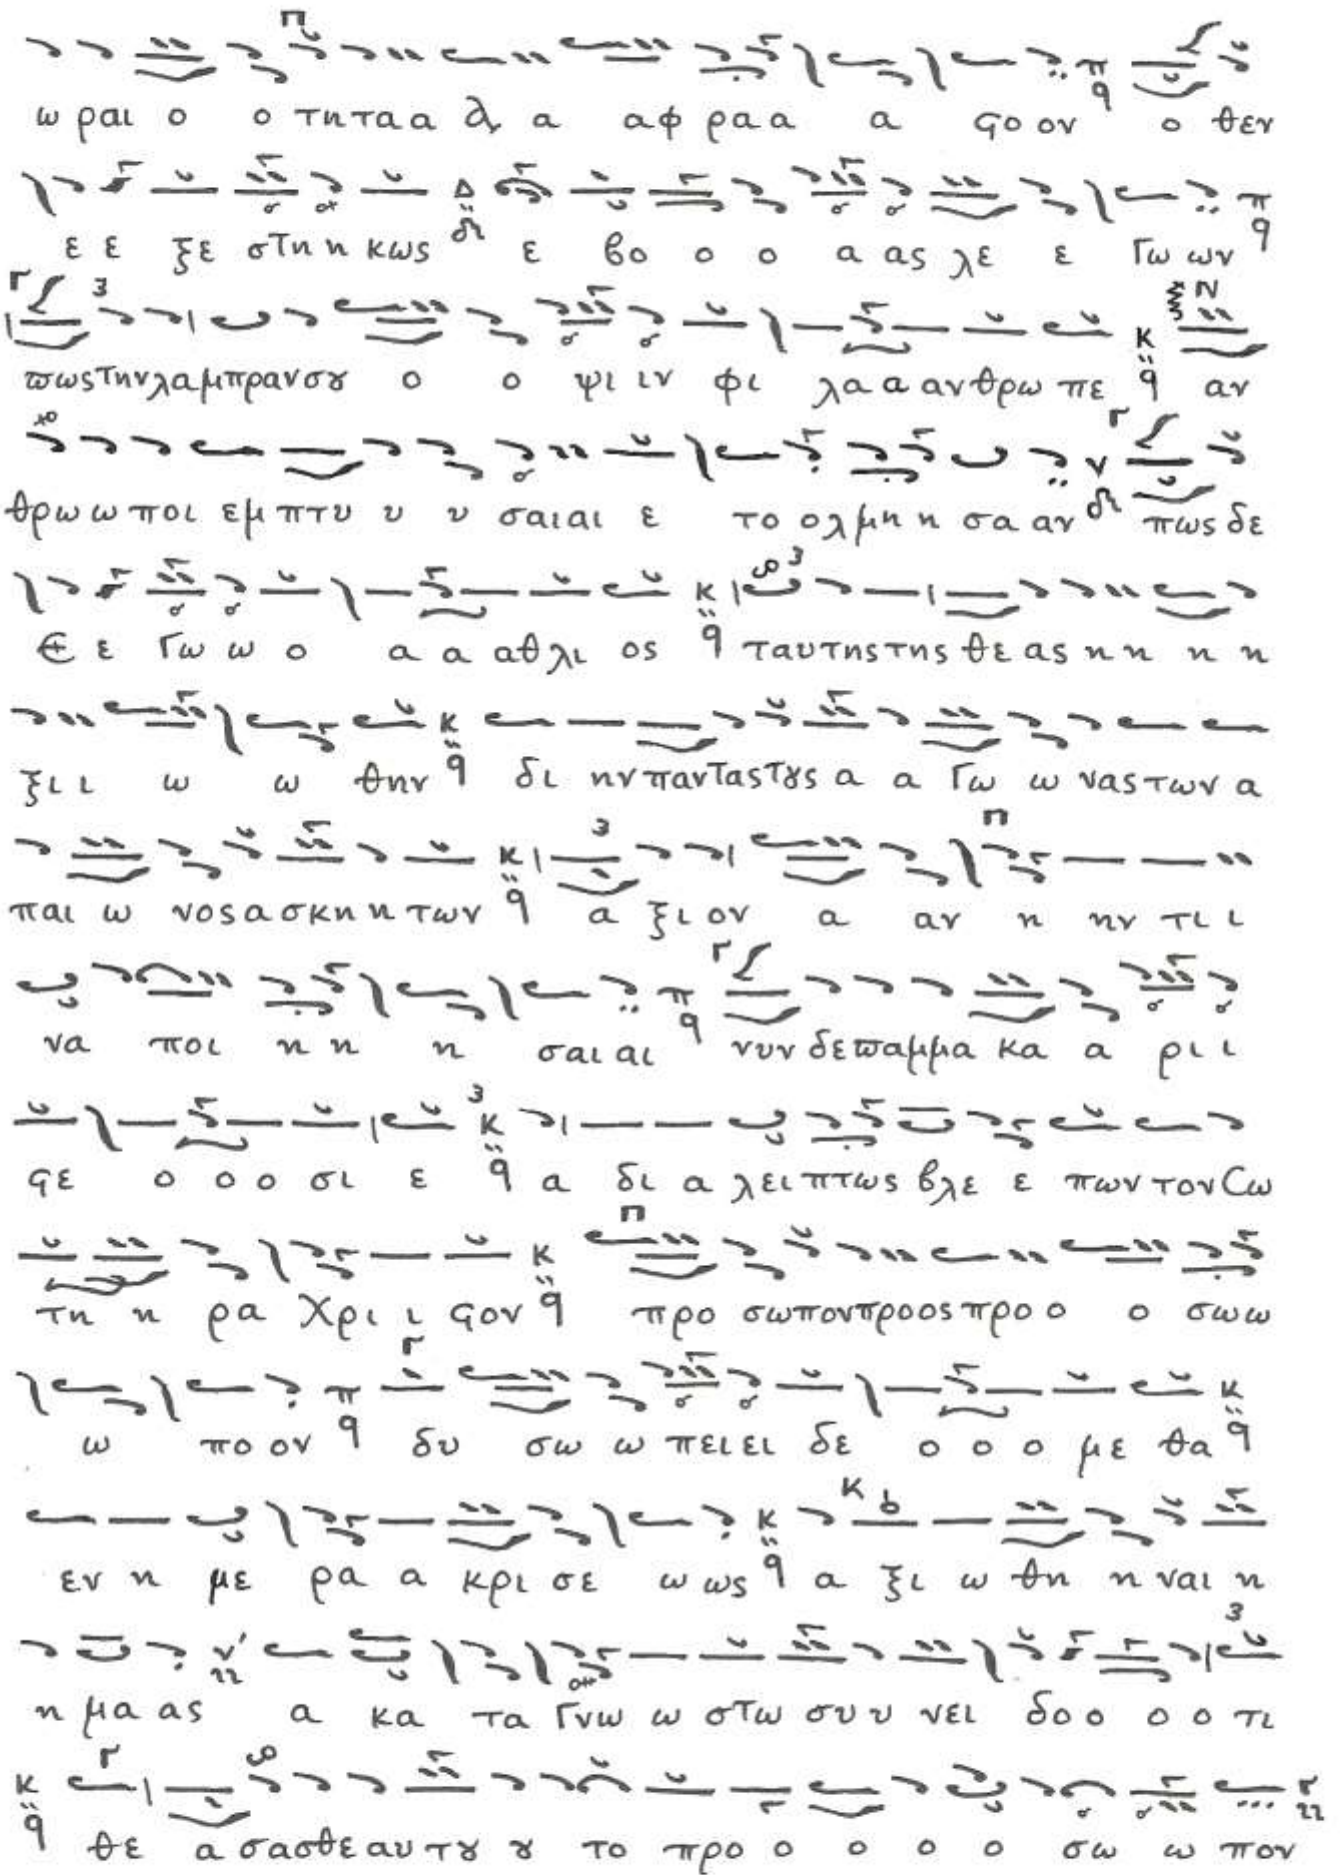 ω ραι ο ο τητα α δι α αφ ρα α α ϛο ον ο θεν
ε ε ξε στη η κως ε βο ο ο α ας λε ε Γω ων
ϖωςτηνλαμπρανσȣ ο ο ψι ιν φι λα α α ανθρω πε αν
θρω ω ποι εμ πτυ υ υ σαι αι ε το ολμη η σα αν πως δε
Ε ε Γω ω ο α α αθλι ος ταυτηςτης θε ας η η η η
ξι ι ω ω θην δι ην πανταςτȣς α α Γω ω νας των α
παι ω νος α σκη η των α ξι ον α αν η ην τι ι
να ποι η η η σαι αι νυν δεϖαμμα κα α ρι ι
ϛε ο ο ο σι ε α δι α λει πτως βλε ε πων τον Cω
τη η ρα Χρι ι ϛον προ σωπονπροος προ ο ο σω ω
ω πο ον δυ σω ω πει ει δε ο ο ο με θα
εν η με ρα α κρι σε ω ως α ξι ω θη η ναι η
η μα ας α κα τα Γνω ω στω συ υ νει δο ο ο ο τι
θε α σασθε αυ τȣ ȣ το προ ο ο ο ο σω ω πον